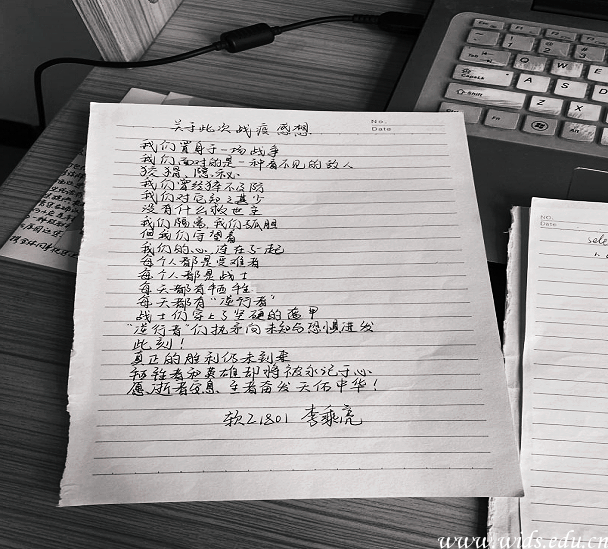 No.
Date
关于此次战疫感想
我们置身于一场战争
我们面对的是一种看不见的敌人
狡猾、隐秘
我们曾经猝不及防
我们对它知之甚少
没有什么救世主
我们隔离,我们孤胆
但我们守望着
我们的心,连在了一起
每个人都是受难者
每个人都是战士
每天都有牺牲
每天都有“逆行者”
战士们穿上了坚硬的盔甲
“逆行者”们执矛向未知与恐惧进发
此刻!
真正的胜利仍未到来
牺牲者和英雄都将被永记于心
愿逝者安息,生者奋发,天佑中华!
软工1801 李乘亮
NO.
Date
www.wids.edu.cn